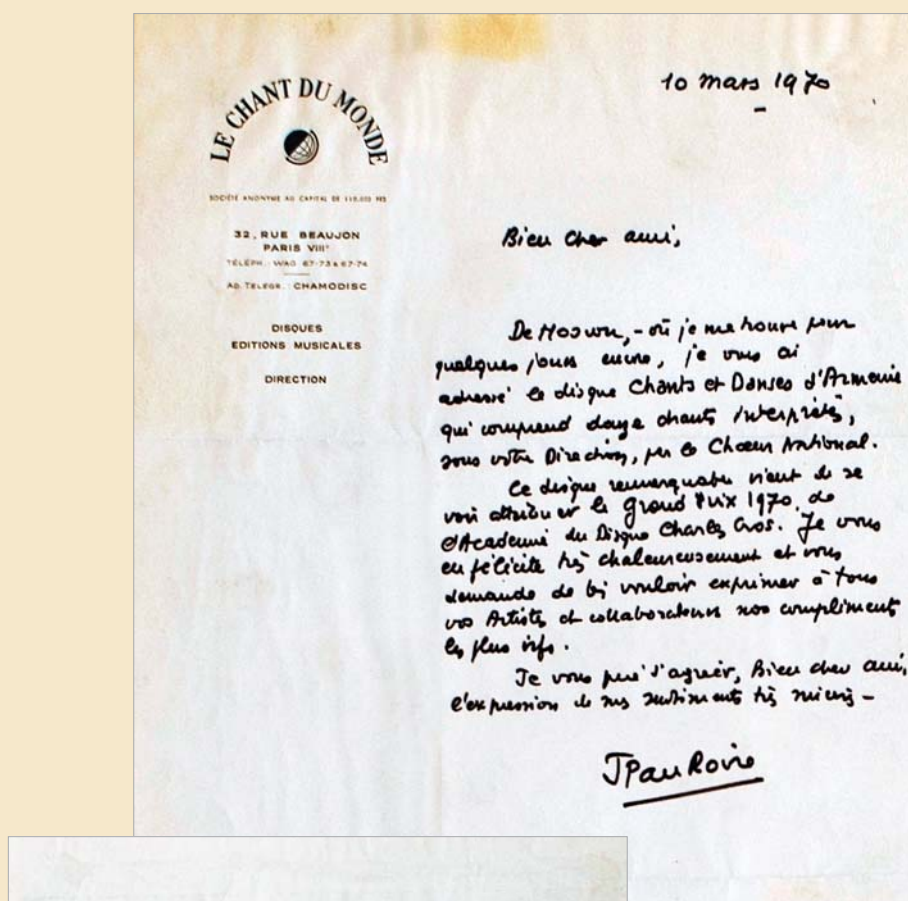 LE CHANT DU MONDE
SOCIÉTÉ ANONYME AU CAPITAL DE
32, RUE BEAUJON
PARIS VIIIe
TÉLÉPH. : WAG. 67-73 & 67-74
AD. TÉLÉGR. : CHAMODISC
DISQUES
EDITIONS MUSICALES
DIRECTION
10 mars 1970
Bien cher ami,
De Moscou, - où je me trouve pour
quelques jours encore, je vous ai
adressé le disque Chants et Danses d'Armenie
qui comprend douze chants interprétés,
sous votre Direction, par le Chœur National.
Ce disque remarquable vient de se
voir attribuer le Grand Prix 1970 de
l'Academie du Disque Charles Cros. Je vous
en félicite très chaleureusement et vous
demande de bien vouloir exprimer à tous
vos Artistes et collaborateurs nos compliments
les plus vifs.
Je vous prie d'agréer, Bien cher ami,
l'expression de mes sentiments très